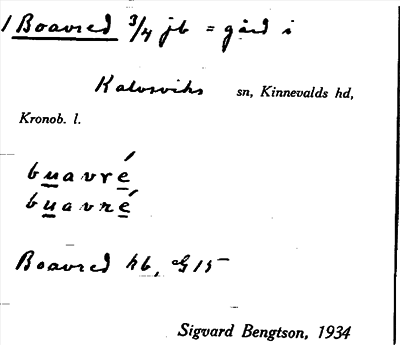 1 Boavred 3/4 jb = gård i
Kalvsviks sn, Kinnevalds hd,
Kronob. l.
buavré
buavré
Boavred hb, G 15
Sigvard Bengtson, 1934